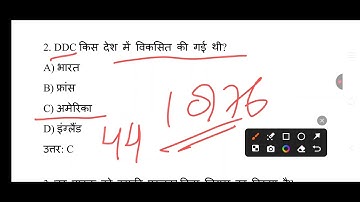 2. DDC किस देश में विकसित की गई थी?
A) भारत
B) फ्रांस
C) अमेरिका
D) इंग्लैंड
उत्तर: C
1976
44